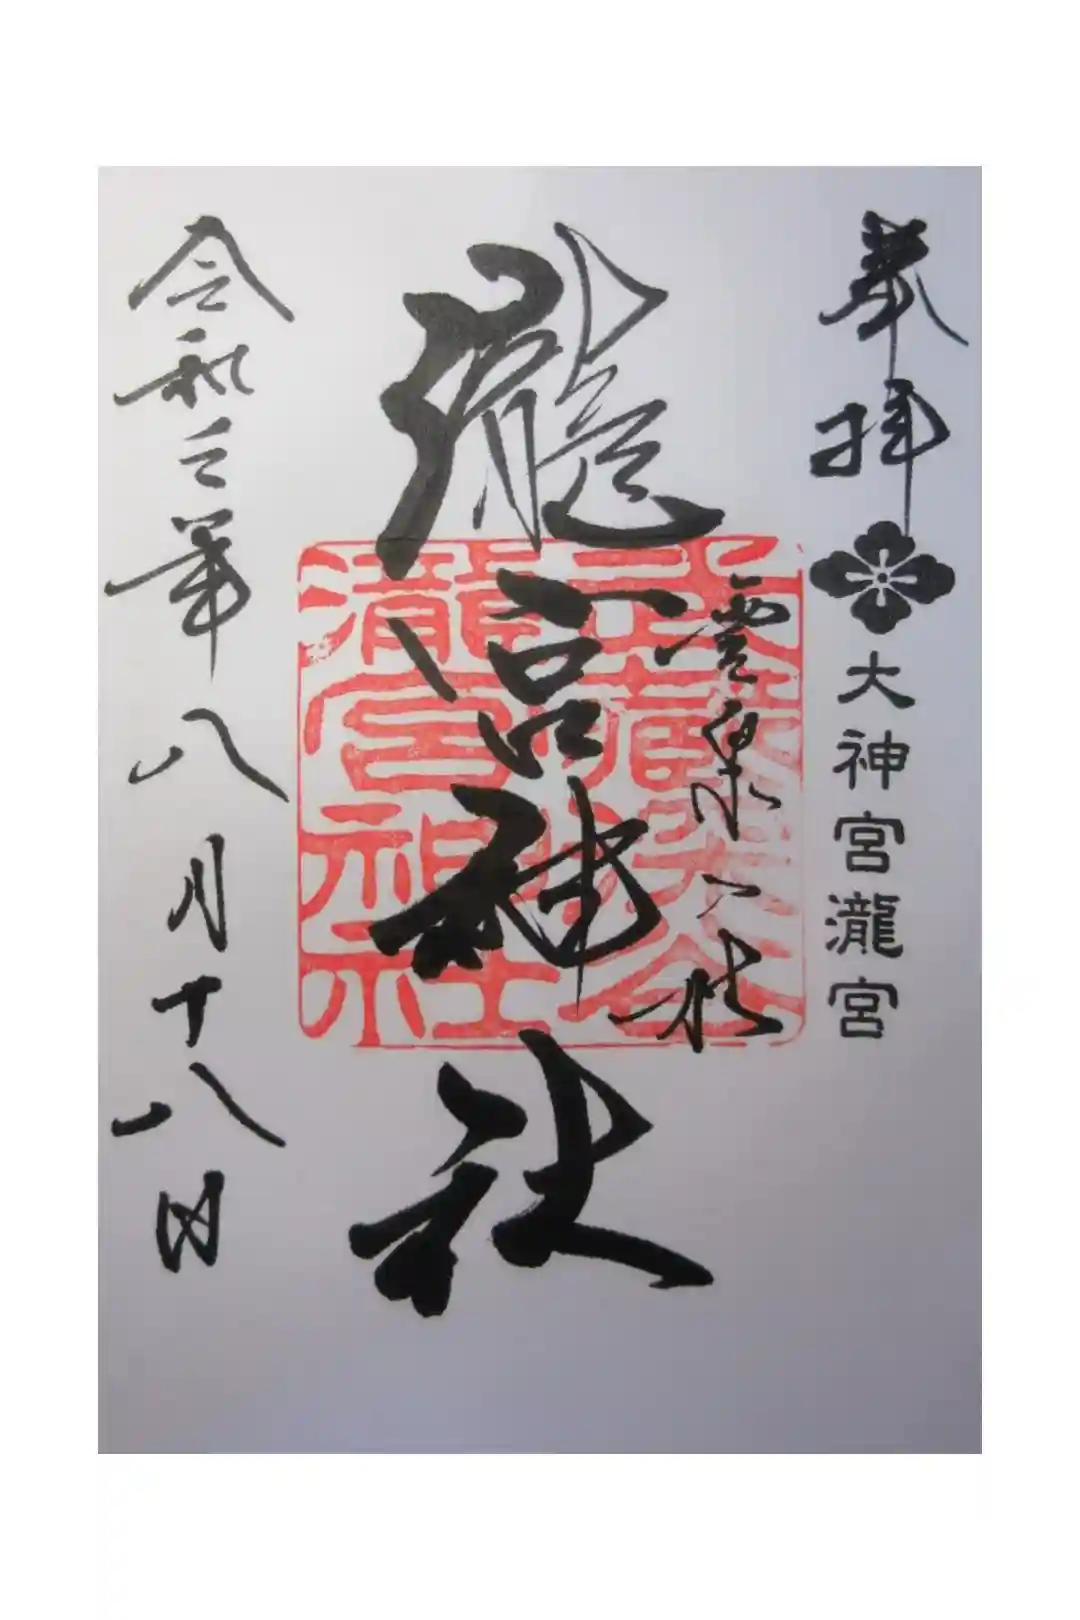 奉拝
大神宮瀧宮
瀧宮神社
武蔵深谷
瀧宮神社
令和三年八月十八日